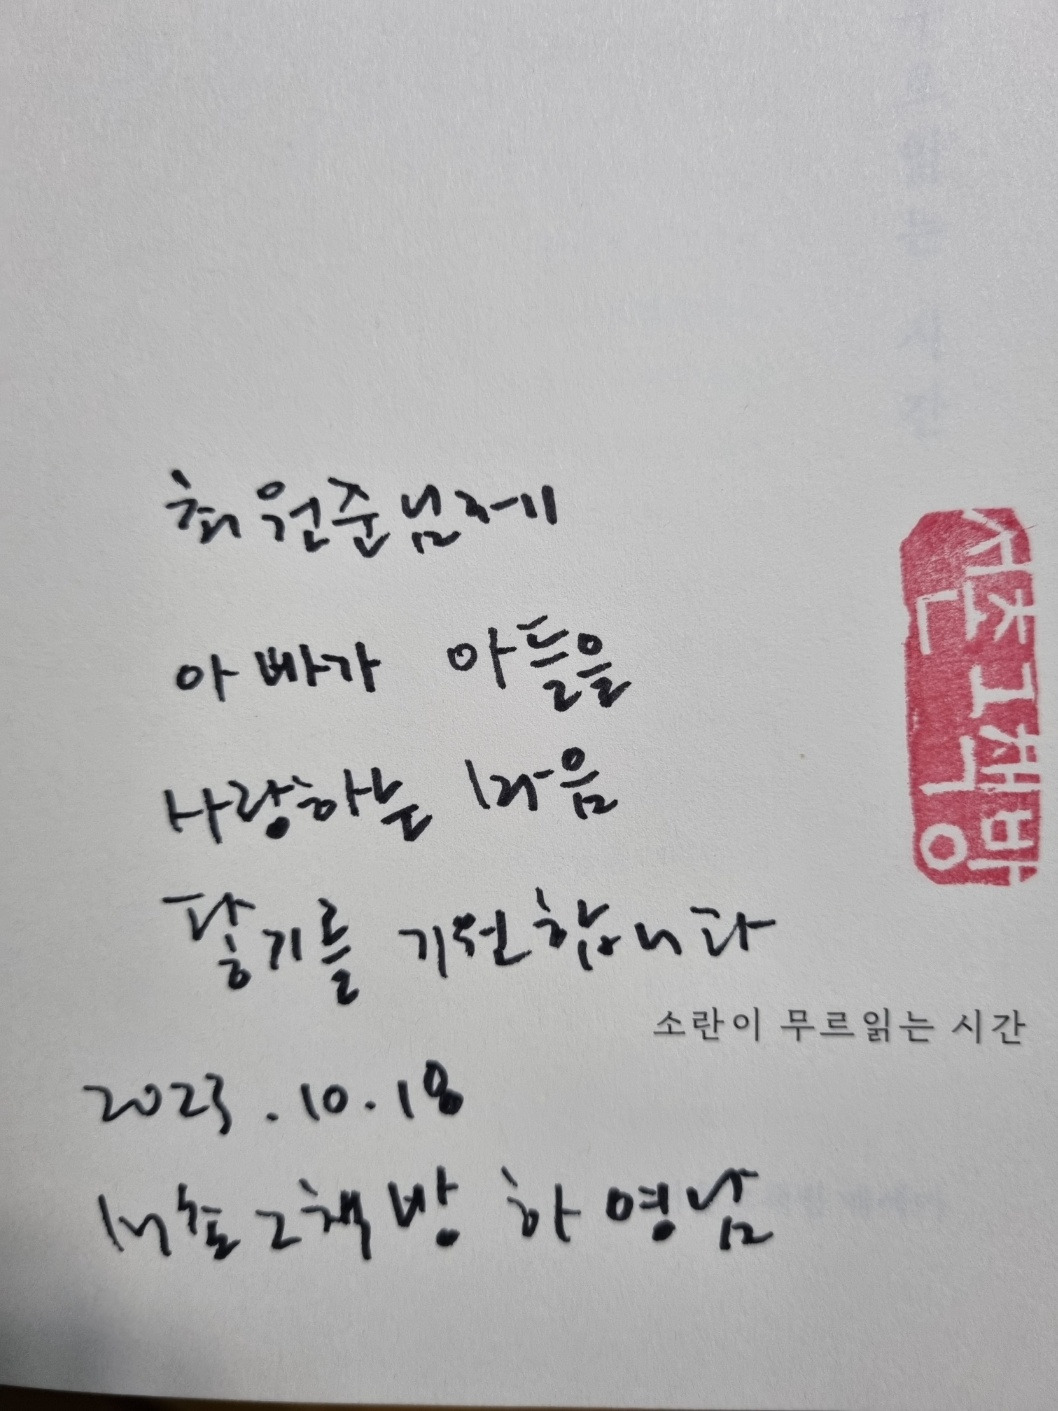 최원준님께
아빠가 아들을
사랑하는 마음
닿기를 기원합니다
서촌그책방
소란이 무르읽는 시간
2023.10.18
서촌그책방 하영남